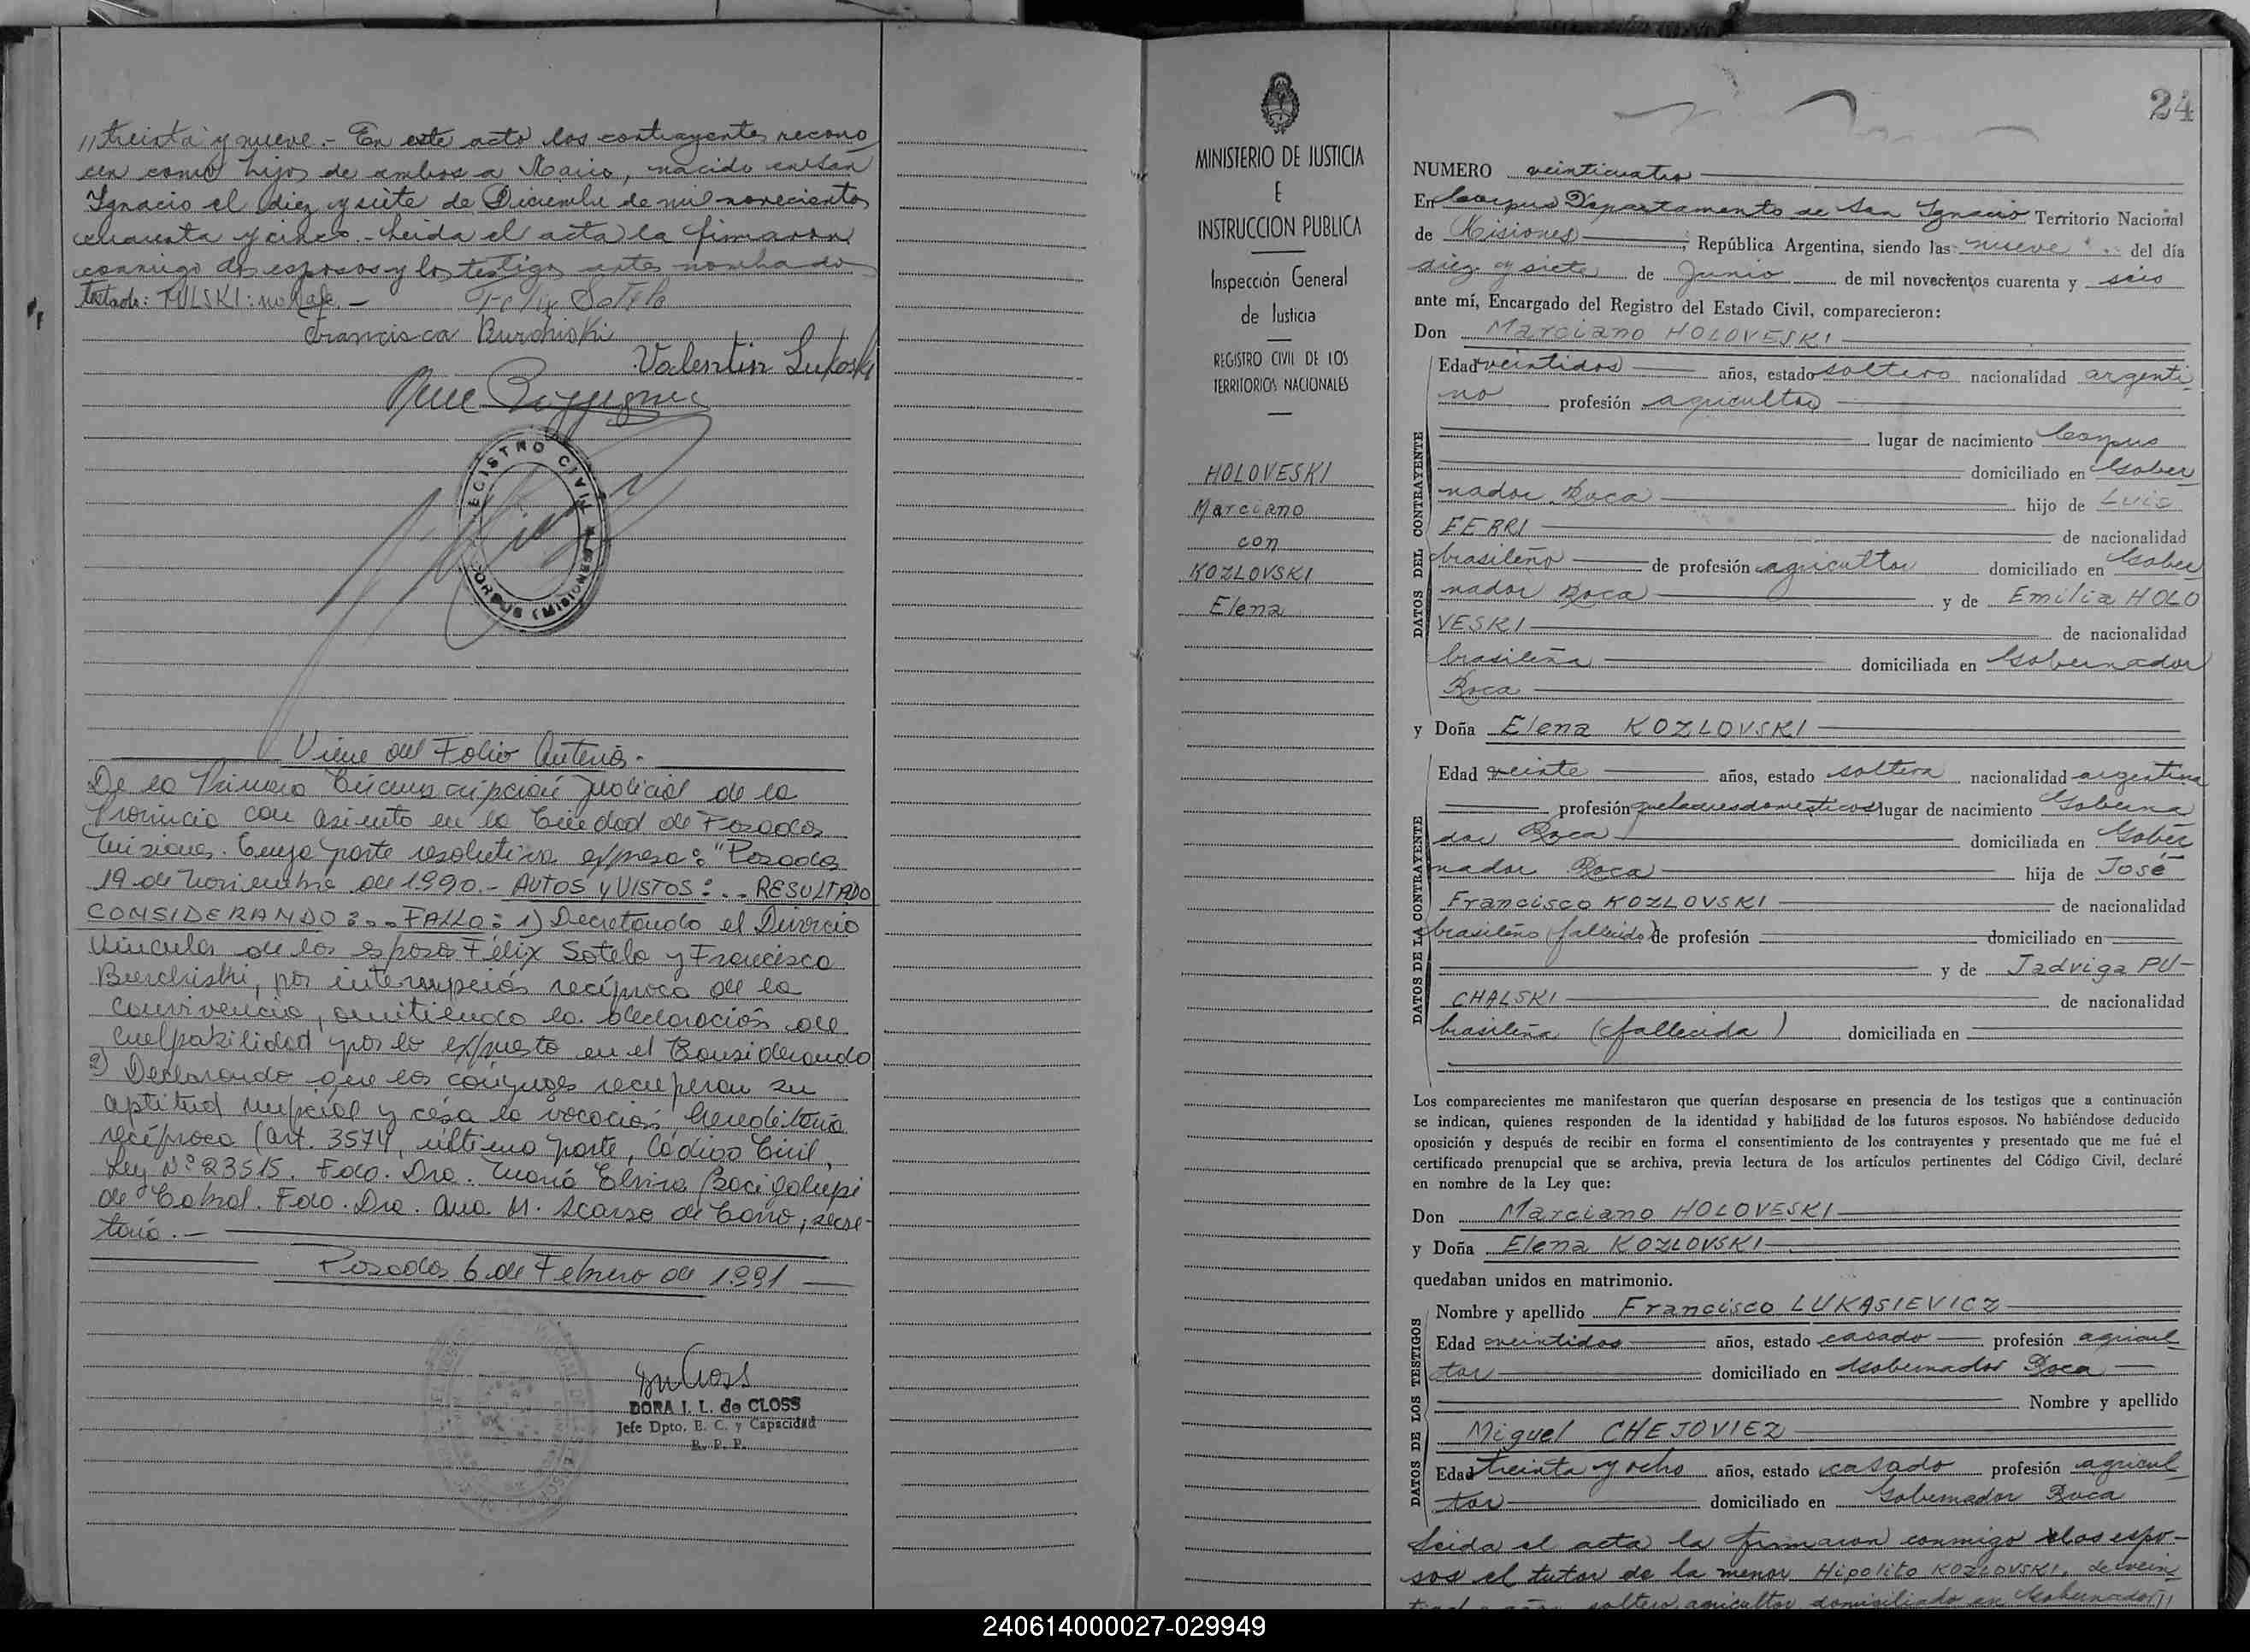 // treinta y nueve.- En este acto los contrayentes recono
cen como hijos de ambos a Mario, nacido en San
Ignacio el diez y siete de Diciembre de mil novecientos
cuarenta y cinco.- Leida el acta la firmaron
conmigo los esposos y los testigos antes nombrado
Testado: : no vale.-
Felix Sotelo
Francisca Burchiski
Valentin Lukoski
REGISTRO CIVIL
CORPUS (MISIONES)
Viene del Folio Anterior.-
De la Primera Circunscripción Judicial de la
Provincia con asiento en la Ciudad de Posadas
Misiones. Cuya parte resolutiva expresa: "Posadas
19 de Noviembre de 1990.- AUTOS y VISTOS:... RESULTADO
CONSIDERANDO:... FALLO: 1) Decretando el Divorcio
Vincular de los esposos Félix Sotelo y Francisca
Burchiski, por interrupción recíproca de la
convivencia, omitiendo la declaración de
culpabilidad por lo expuesto en el Considerando
2) Declarando que los cónyuges recuperan su
aptitud nupcial y cesa la vocación hereditaria
recíproca (art. 3574, última parte, Código Civil,
Ley Nº 23515. Fdo. Dra. María Elvira Bacigalupi
de Cabral. Fdo. Dra. Ana M. Scarso de Cano, secre-
taria.-
Posadas 6 de Febrero de 1991
DORA I. L. de CLOSS
Jefe Dpto. E. C. y Capacidad
R. P. P.
MINISTERIO DE JUSTICIA
E
INSTRUCCION PUBLICA
Inspección General
de Justicia
REGISTRO CIVIL DE LOS
TERRITORIOS NACIONALES
HOLOVESKI
Marciano
con
KOZLOVSKI
Elena
24
NUMERO veinticuatro
En Corpus Departamento de San Ignacio Territorio Nacional
de Misiones, República Argentina, siendo las nueve del día
diez y siete de Junio de mil novecientos cuarenta y seis
ante mí, Encargado del Registro del Estado Civil, comparecieron:
Don Marciano HOLOVESKI
DATOS DEL CONTRAYENTE
Edad veintidos años, estado soltero nacionalidad argenti
no profesión agricultor
lugar de nacimiento Corpus
domiciliado en Gober
nador Roca hijo de Luis
FERRI de nacionalidad
brasileño de profesión agricultor domiciliado en Gober
nador Roca y de Emilia HOLO
VESKI de nacionalidad
brasileña domiciliada en Gobernador
Roca
y Doña Elena KOZLOVSKI
DATOS DE LA CONTRAYENTE
Edad veinte años, estado soltera nacionalidad argentina
profesión quehaceres domesticos lugar de nacimiento Goberna
dor Roca domiciliada en Gober
nador Roca hija de José
Francisco KOZLOVSKI de nacionalidad
brasileño (fallecido) de profesión domiciliado en
y de Jadviga PU-
CHALSKI de nacionalidad
brasileña (fallecida) domiciliada en
Los comparecientes me manifestaron que querían desposarse en presencia de los testigos que a continuación
se indican, quienes responden de la identidad y habilidad de los futuros esposos. No habiéndose deducido
oposición y después de recibir en forma el consentimiento de los contrayentes y presentado que me fué el
certificado prenupcial que se archiva, previa lectura de los artículos pertinentes del Código Civil, declaré
en nombre de la Ley que:
Don Marciano HOLOVESKI
y Doña Elena KOZLOVSKI
quedaban unidos en matrimonio.
DATOS DE LOS TESTIGOS
Nombre y apellido Francisco LUKASIEVICZ
Edad veintidos años, estado casado profesión agricul
tor domiciliado en Gobernador Roca
Nombre y apellido
Miguel CHEJOVIEZ
Edad treinta y ocho años, estado casado profesión agricul
tor domiciliado en Gobernador Roca
Leida el acta la firmaron conmigo los espo-
sos el tutor de la menor Hipolito KOZLOVSKI, de vein
soltero, agricultor, domiciliado en Gobernador //
240614000027-029949